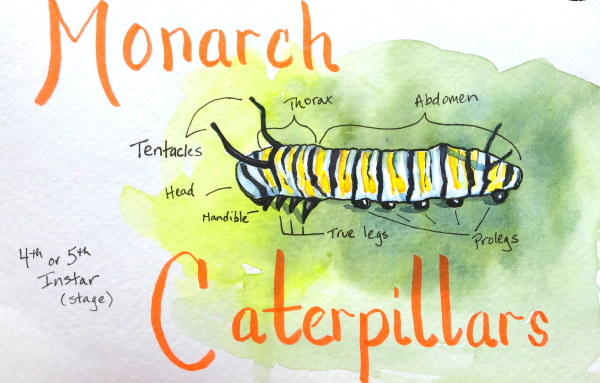 Monarch
Thorax
Abdomen
Tentacles
Head
Mandible
True legs
Prolegs
4th or 5th
Instar
(stage)
Caterpillars